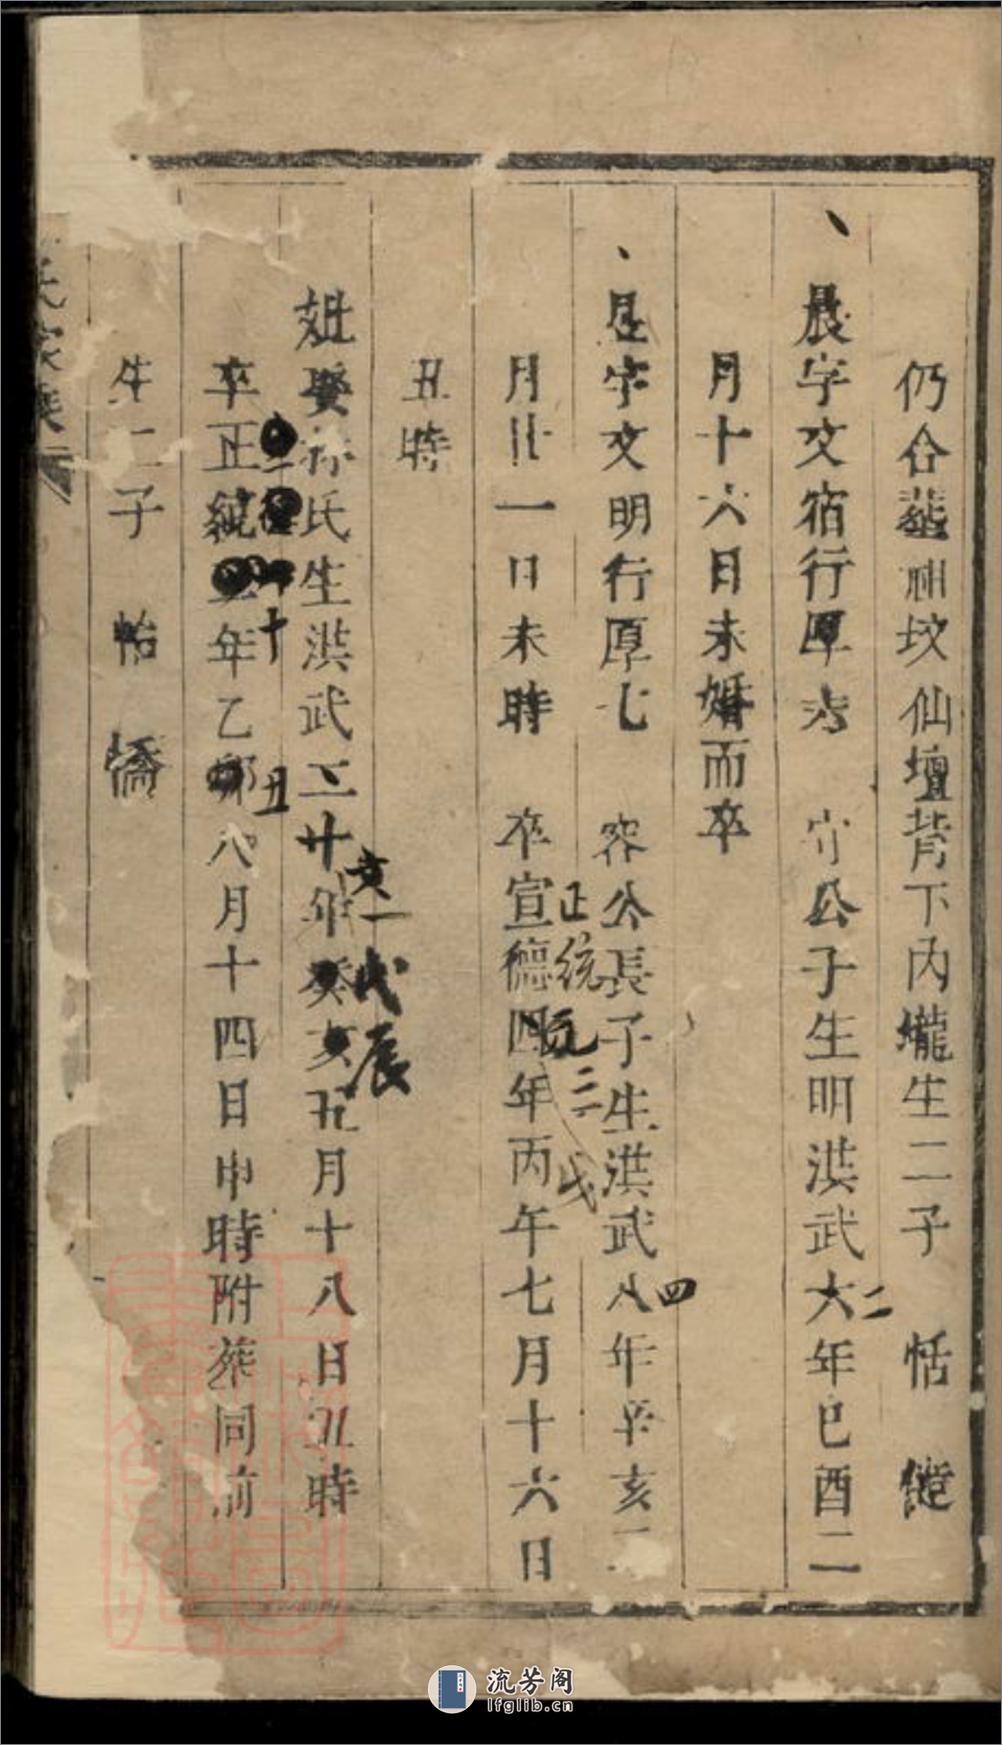 仍合葬祖坟仙壇背下內壠生二子　恬
晨字文宿行厚六　守公子生明洪武六年己酉二
二
月十六日未婚而卒
字文明行厚七　容公長子生洪武八年辛亥二
四
月廿一日未時　卒宣德四年丙午七月十六日
正统元二戊
丑時
妣娶孫氏生洪武二十年癸亥九月十八日丑時
亥一戊辰
卒正統五年乙卯八月十四日申時附葬同前
十
丑
生二子　怡　憍
氏家乘
流芳阁
lfglib.cn